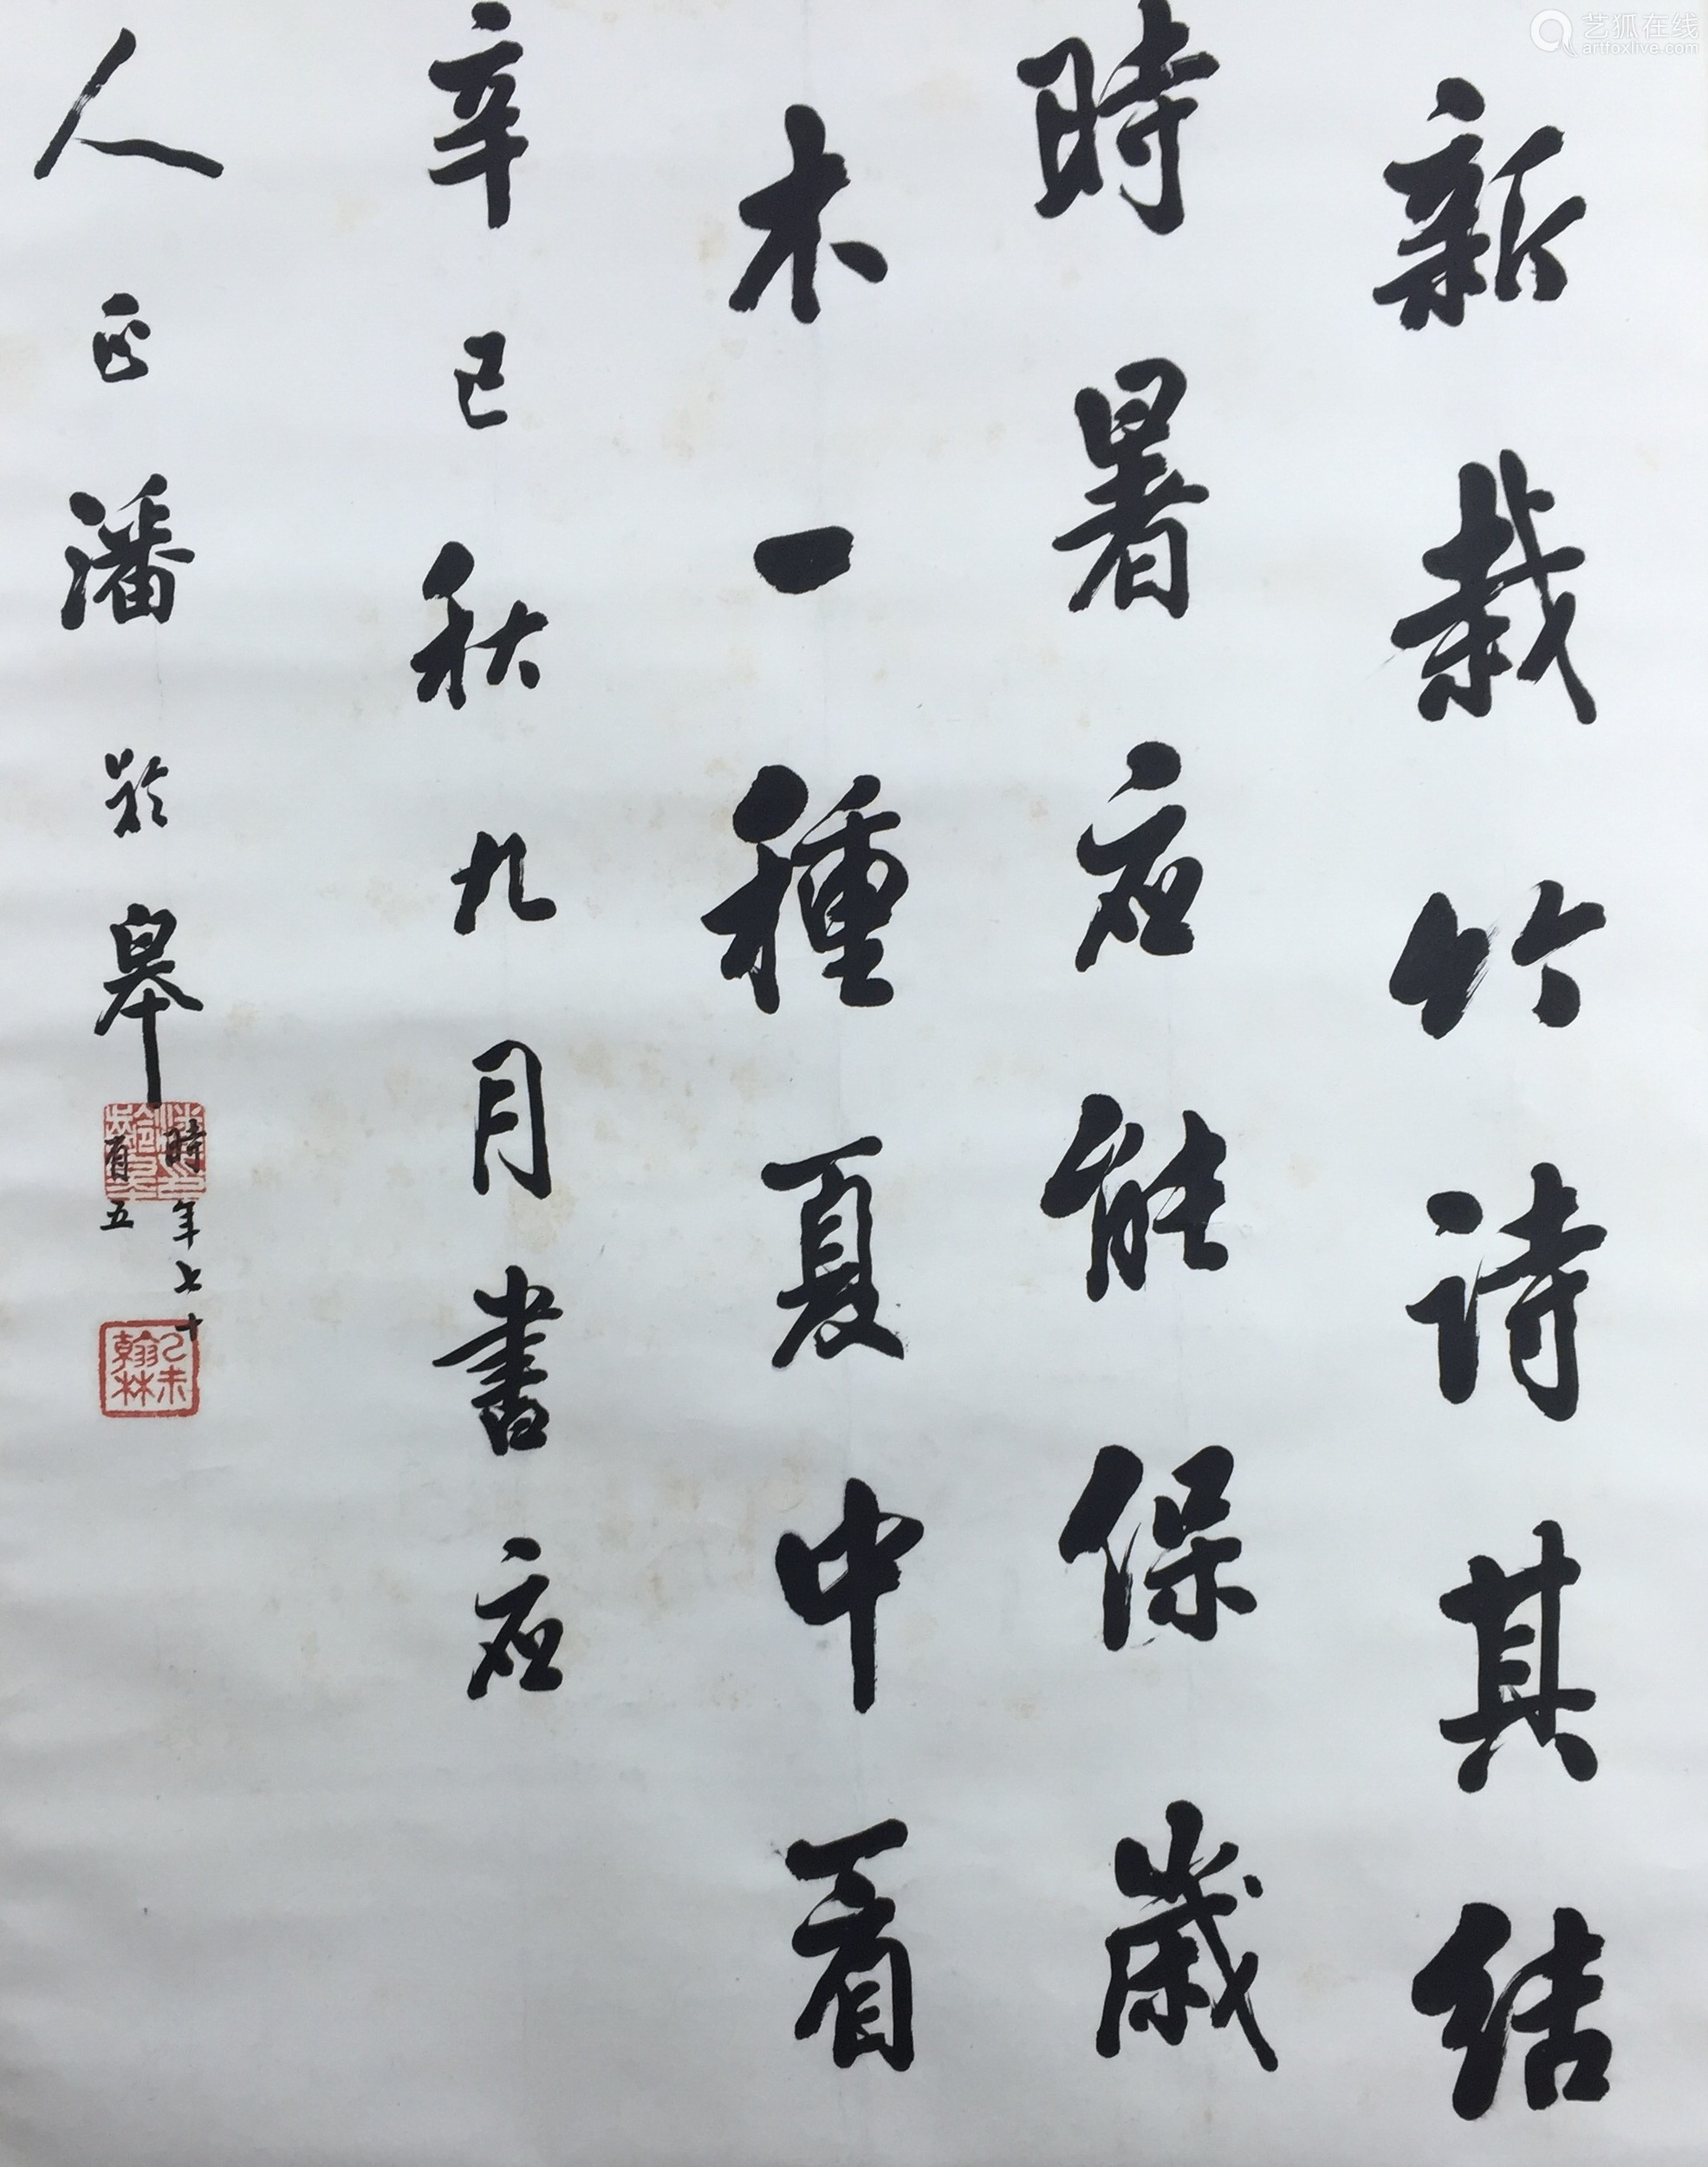 新栽竹詩其結
時暑应能保歲
木一種夏中看
辛巳秋九月書应
人正潘龄皋
時年七十
有五
翰林
艺狐在线
artfoxlive.com